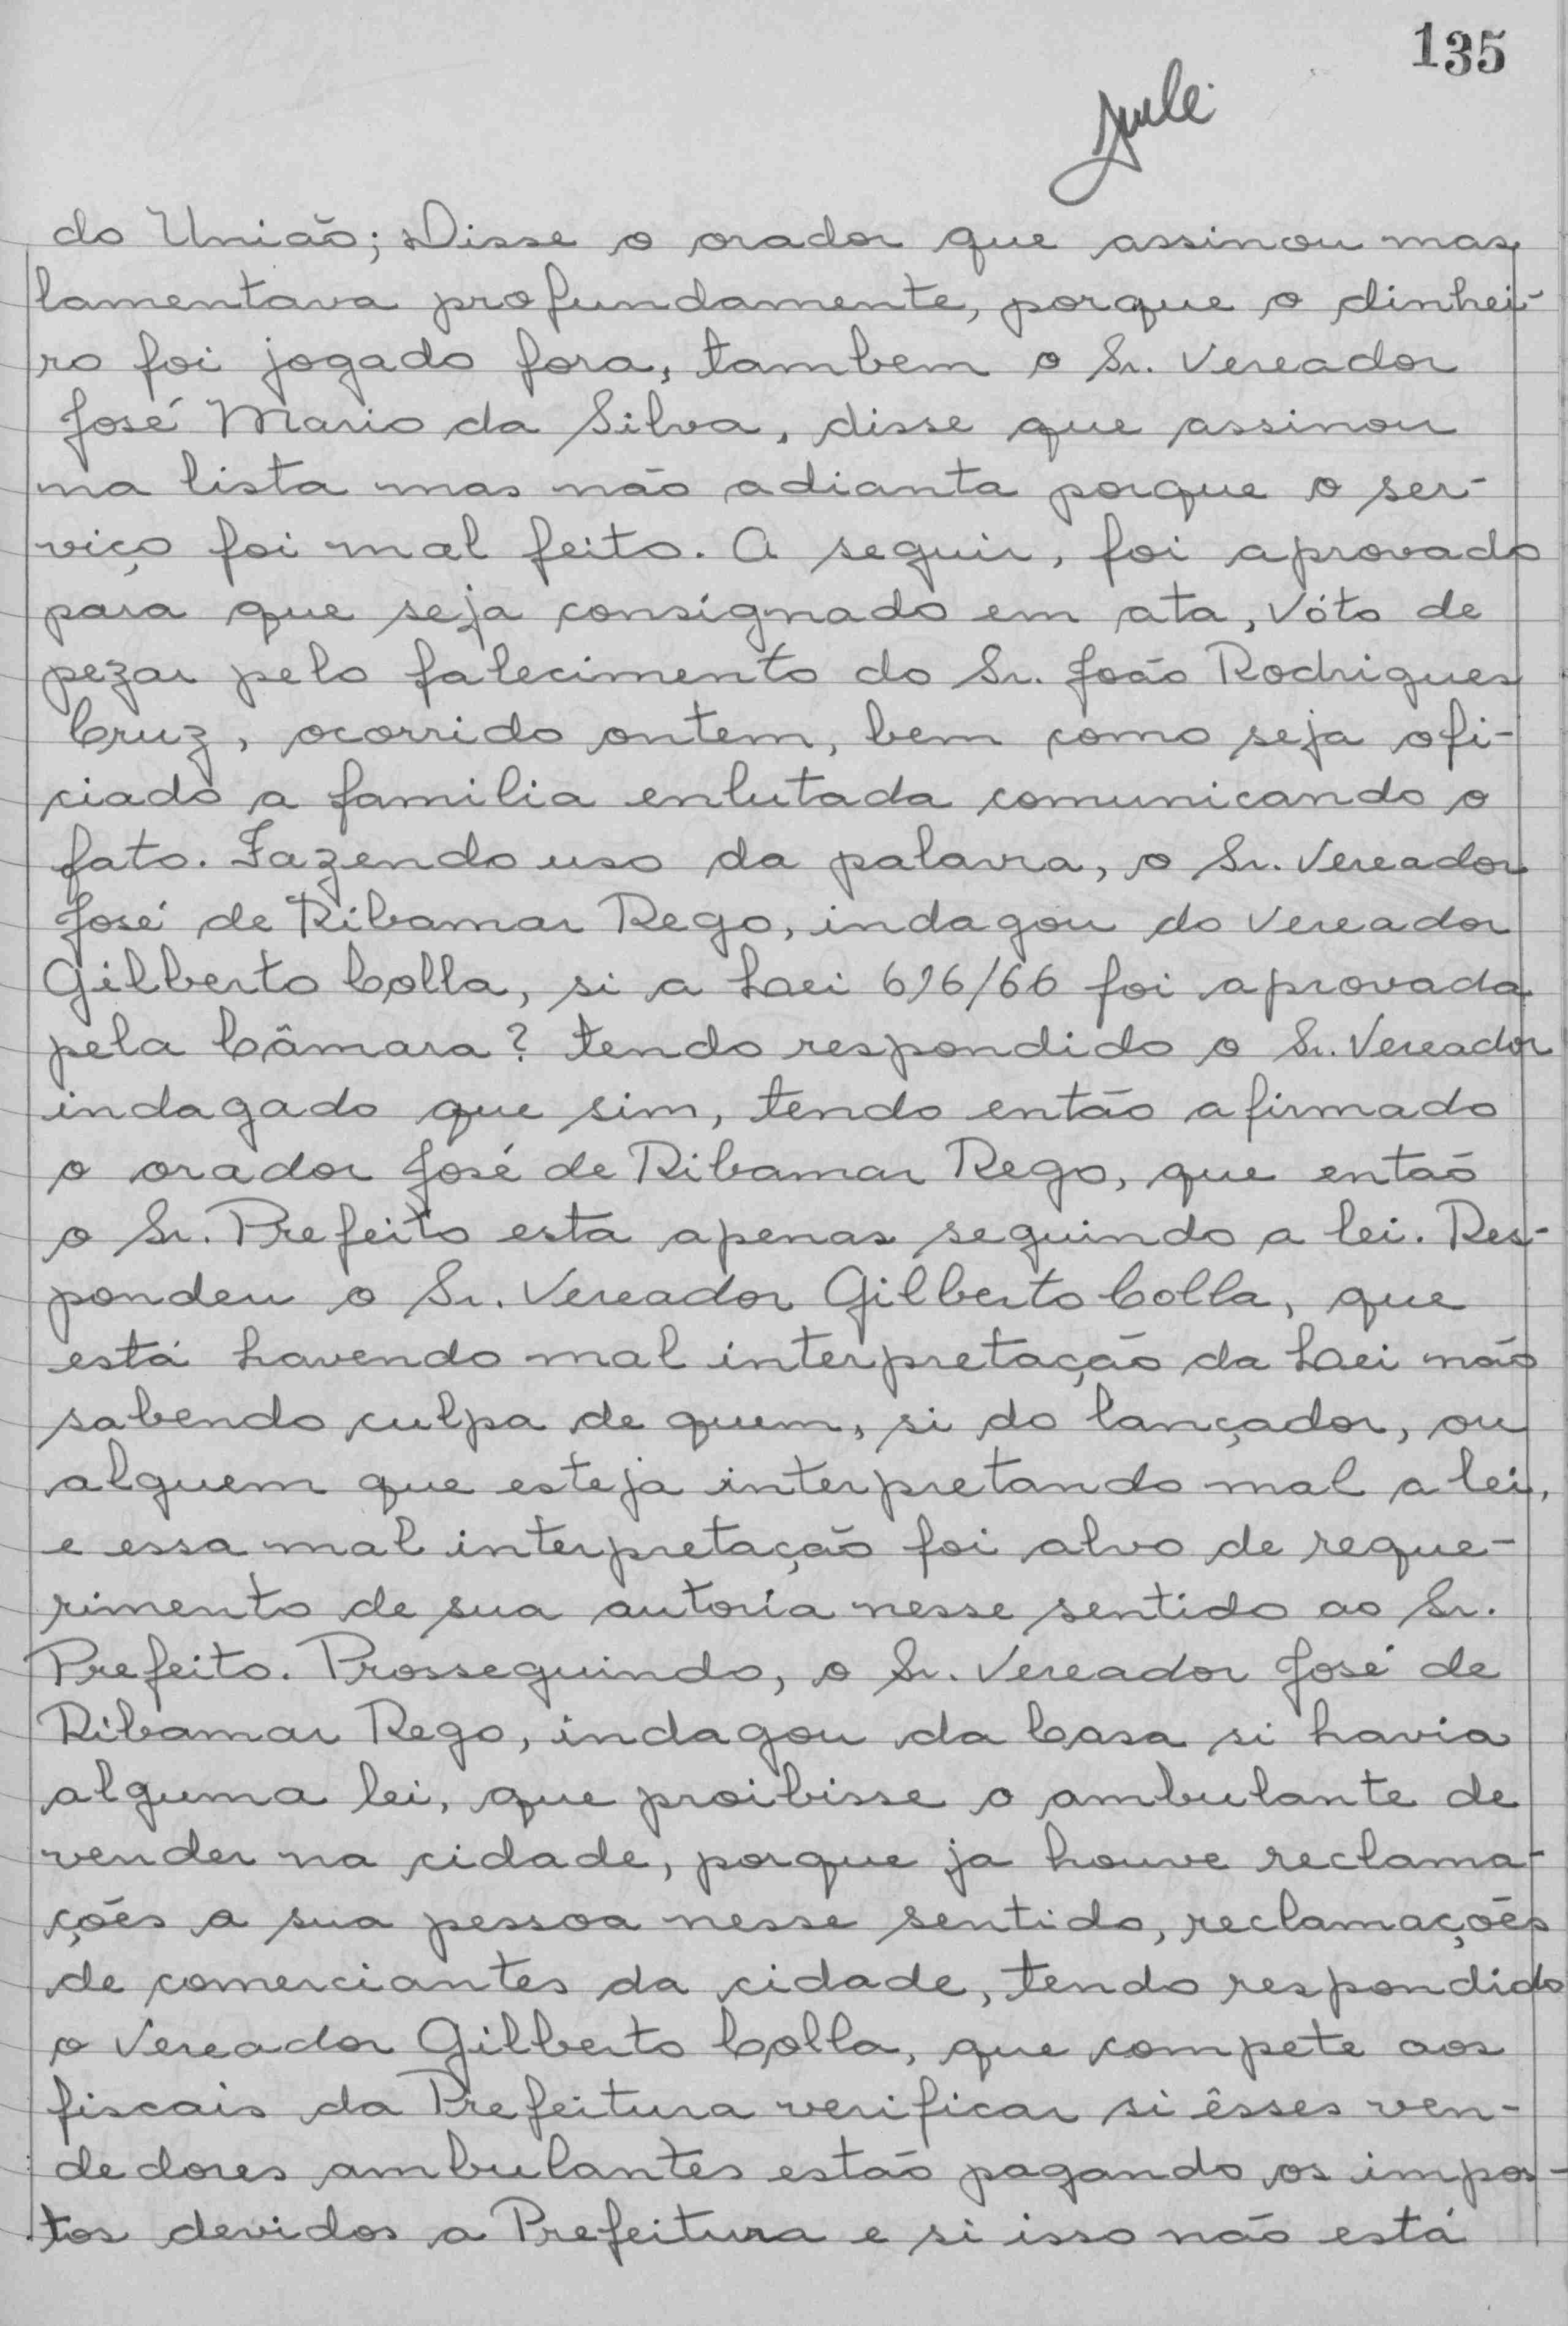 135
do União; Disse o orador que assinou mas
lamentava profundamente, porque o dinhei-
ro foi jogado fora, tambem o Sr. Vereador
José Mario da Silva, disse que assinou
na lista mas não adianta porque o ser-
viço foi mal feito. A seguir, foi aprovado
para que seja consignado em ata, Vóto de
pezar pelo falecimento do Sr. João Rodrigues
Cruz, ocorrido ontem, bem como seja ofi-
ciado a familia enlutada comunicando o
fato. Fazendo uso da palavra, o Sr. Vereador
José de Ribamar Rego, indagou do Vereador
Gilberto Colla, si a Lei 616/66 foi aprovada
pela Câmara? tendo respondido o Sr. Vereador
indagado que sim, tendo então afirmado
o orador José de Ribamar Rego, que então
o Sr. Prefeito esta apenas seguindo a lei. Res-
pondeu o Sr. Vereador Gilberto Colla, que
está havendo mal interpretação da Lei não
sabendo culpa de quem, si do lançador, ou
alguem que esteja interpretando mal a lei,
e essa mal interpretação foi alvo de reque-
rimento de sua autoria nesse sentido ao Sr.
Prefeito. Prosseguindo, o Sr. Vereador José de
Ribamar Rego, indagou da Casa si havia
alguma lei, que proibisse o ambulante de
vender na cidade, porque ja houve reclama-
ções a sua pessoa nesse sentido, reclamações
de comerciantes da cidade, tendo respondido
o Vereador Gilberto Colla, que compete aos
fiscais da Prefeitura verificar si êsses ven-
dedores ambulantes estão pagando os impos-
tos devidos a Prefeitura e si isso não está